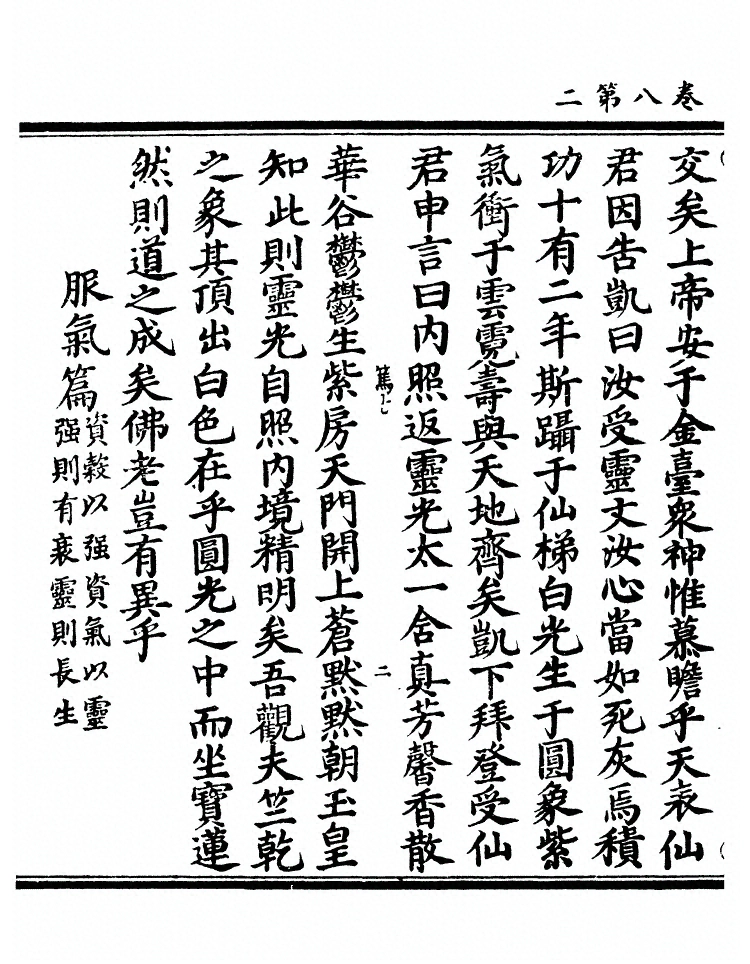 卷八第二
交矣上帝安于金臺衆神惟慕瞻乎天表仙
君因告凱曰汝受靈文汝心當如死灰焉積
功十有二年斯躡于仙梯白光生于圓象紫
氣衝于雲霓壽與天地齊矣凱下拜登受仙
君申言曰内照返靈光太一含真芳馨香散
篤七 二
華谷鬱鬱生紫房天門開上蒼默默朝玉皇
知此則靈光自照内境精明矣吾觀夫竺乾
之象其頂出白色在乎圓光之中而坐寶蓮
然則道之成矣佛老豈有異乎
服氣篇資穀以强資氣以靈
强則有衰靈則長生